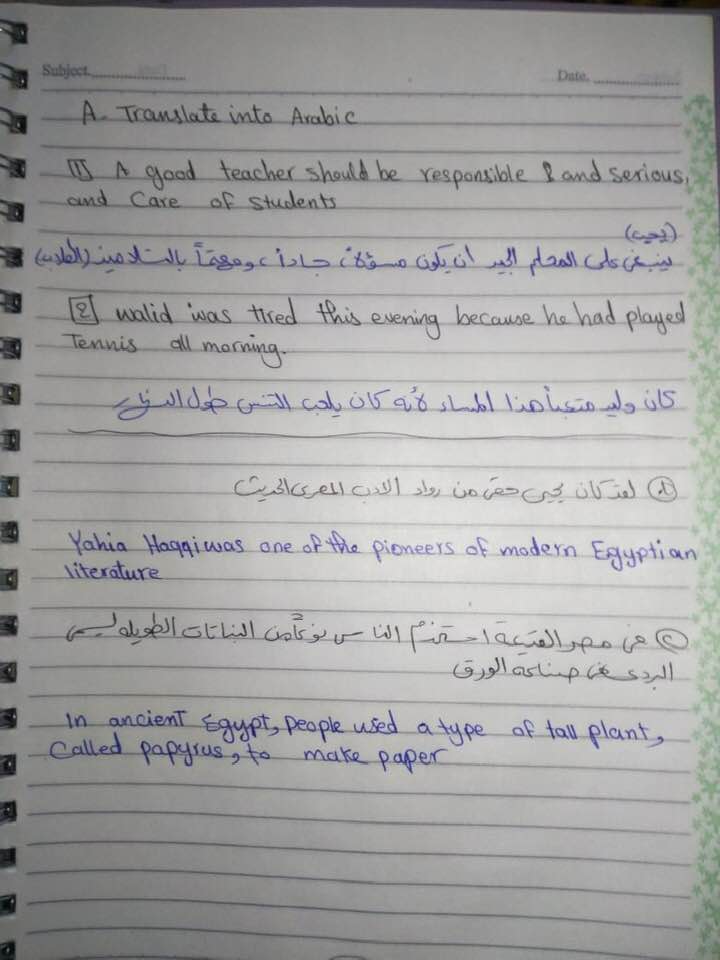 Subject.................... Date. ....................
A- Translate into Arabic
[1] A good teacher should be responsible & and serious,
and care of students
(يجب)
ينبغى على المعلم الجيد أن يكون مسؤلاً، جاداً، ومهتماً بالتلاميذ (الطلاب)
[2] walid was tired this evening because he had played
Tennis all morning.
كان وليد متعباً هذا المساء لأنه كان يلعب التنس طول النهار
١ لقد كان يحيى حقى من رواد الادب المصرى الحديث
Yahia Haqqi was one of the pioneers of modern Egyptian
literature
٢ فى مصر القديمة استخدم الناس نوعاً من النباتات الطويله ليسمى
البردى فى صناعة الورق
In ancient Egypt, people used a type of tall plant,
Called papyrus, to make paper